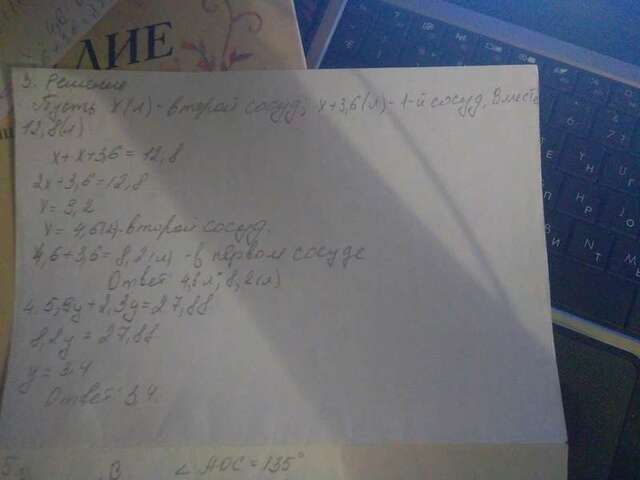 ЛИЕ
3. Решение
Пусть x(л)-второй сосуд, x+3,6(л)-1-й сосуд. Вместе
12,8(л)
x+x+3,6=12,8
2x+3,6=12,8
x=9,2
x=4,6(л)-второй сосуд.
4,6+3,6=8,2(л) -в первом сосуде
Ответ 4,6л; 8,2(л)
4. 5,9y+2,3y=27,88
8,2y=27,88
y=3,4
Ответ: 3,4
5. В ∠AOC=135°